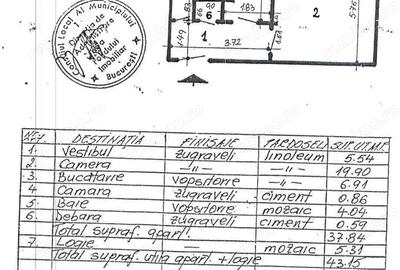 Consiliul Local Al Municipiului
București
Imobiliar
6
90
183
2
5.76
1
1.49
3.72
NR. DESTINAȚIA FINISAJE PARDOSELI SUP.UT.MP.
1. Vestibul zugraveli linoleum 5.54
2. Camera —"— —"— 19.90
3. Bucatarie vopsitorie —"— 6.91
4 Camara zugraveli ciment 0.86
5. Baie vopsitorie mozaic 4.04
6. Debara zugraveli ciment 0.59
Total supraf. apart. 37.84
7. Logie — mozaic 5.31
Total supraf. utila apart. + logie 43.15